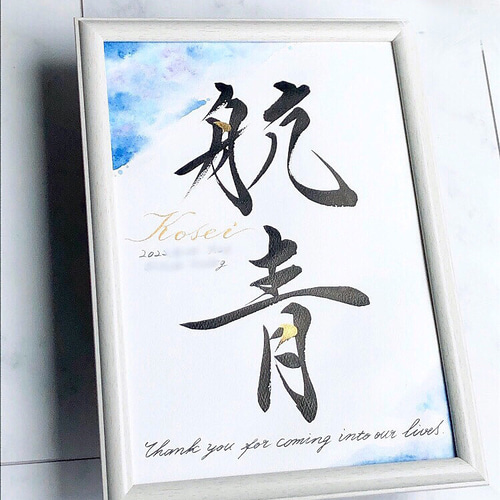 航
青
Kosei
202
g
Thank you for coming into our lives.